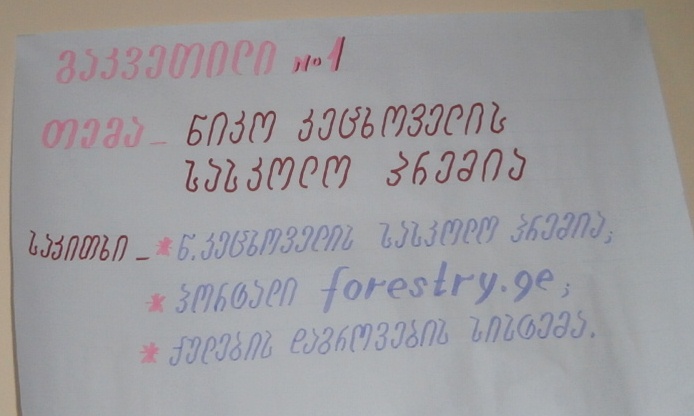 გაკვეთილი №1
თემა - ნიკო კეცხოველის
სასკოლო პრემია
საკითხი - * ნ. კეცხოველის სასკოლო პრემია;
* პორტალი forestry.ge;
* ქულების დაგროვების სისტემა.